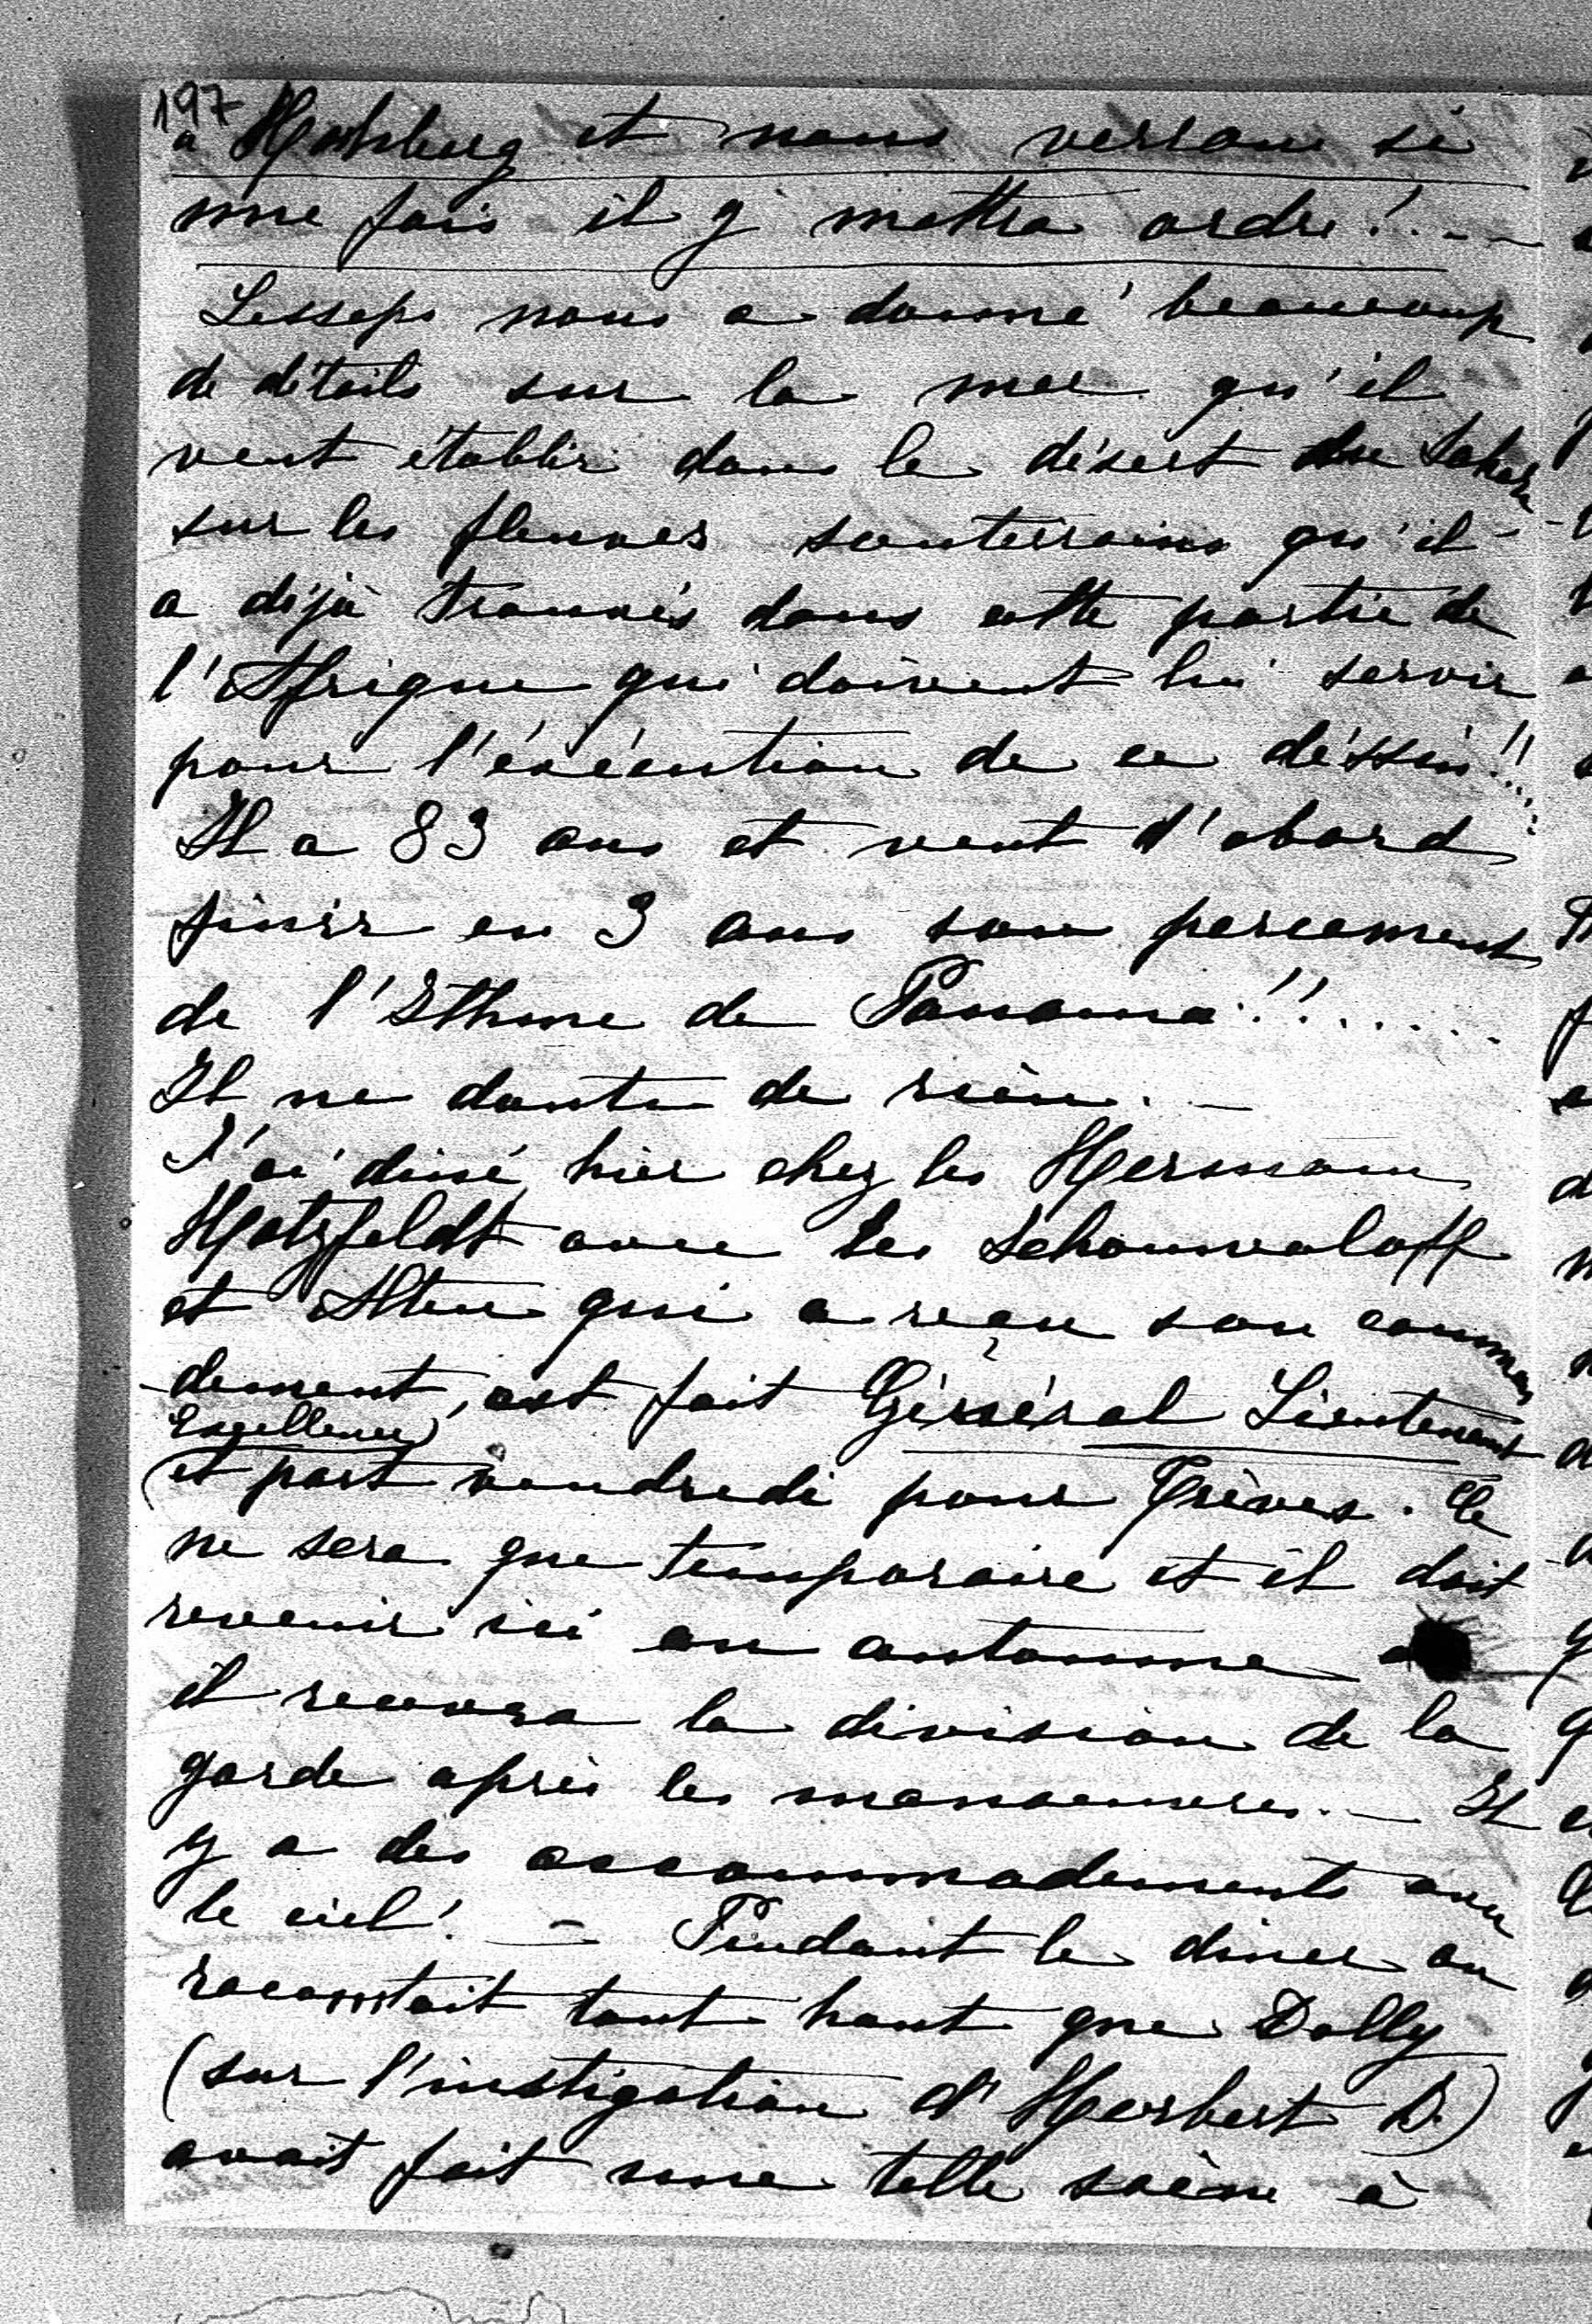 197
à Hambourg et nous verrons si
une fois il y mettra ordre!.--
Lesseps nous a donné beaucoup
de détails sur la mer qu'il
veut établir dans le désert du Sahara
sur les fleuves souterrains qu'il
a déjà trouvés dans cette partie de
l'Afrique qui doivent lui servir
pour l'éxécution de ce déssin!!...
Il a 83 ans et veut d'abord
finir en 3 ans son percement
de l'Isthme de Panama!!......
Il ne doute de rien. –
J'ai diné hier chez les Hermann
Hatzfeldt avec les Schouvaloff
et Alten qui a reçu son comman
-dement, est fait Général Lieutenant
(Excellence)
et part vendredi pour Trèves. Ce
ne sera que temporaire et il doit
revenir ici en automne
il recevra la division de la
garde après les manoeuvres. – Il
y a des accommodements avec
le ciel! – Pendant le diner on
racontait tout haut que Dolly
(sur l'instigation d'Herbert B.)
avait fait une telle scène à